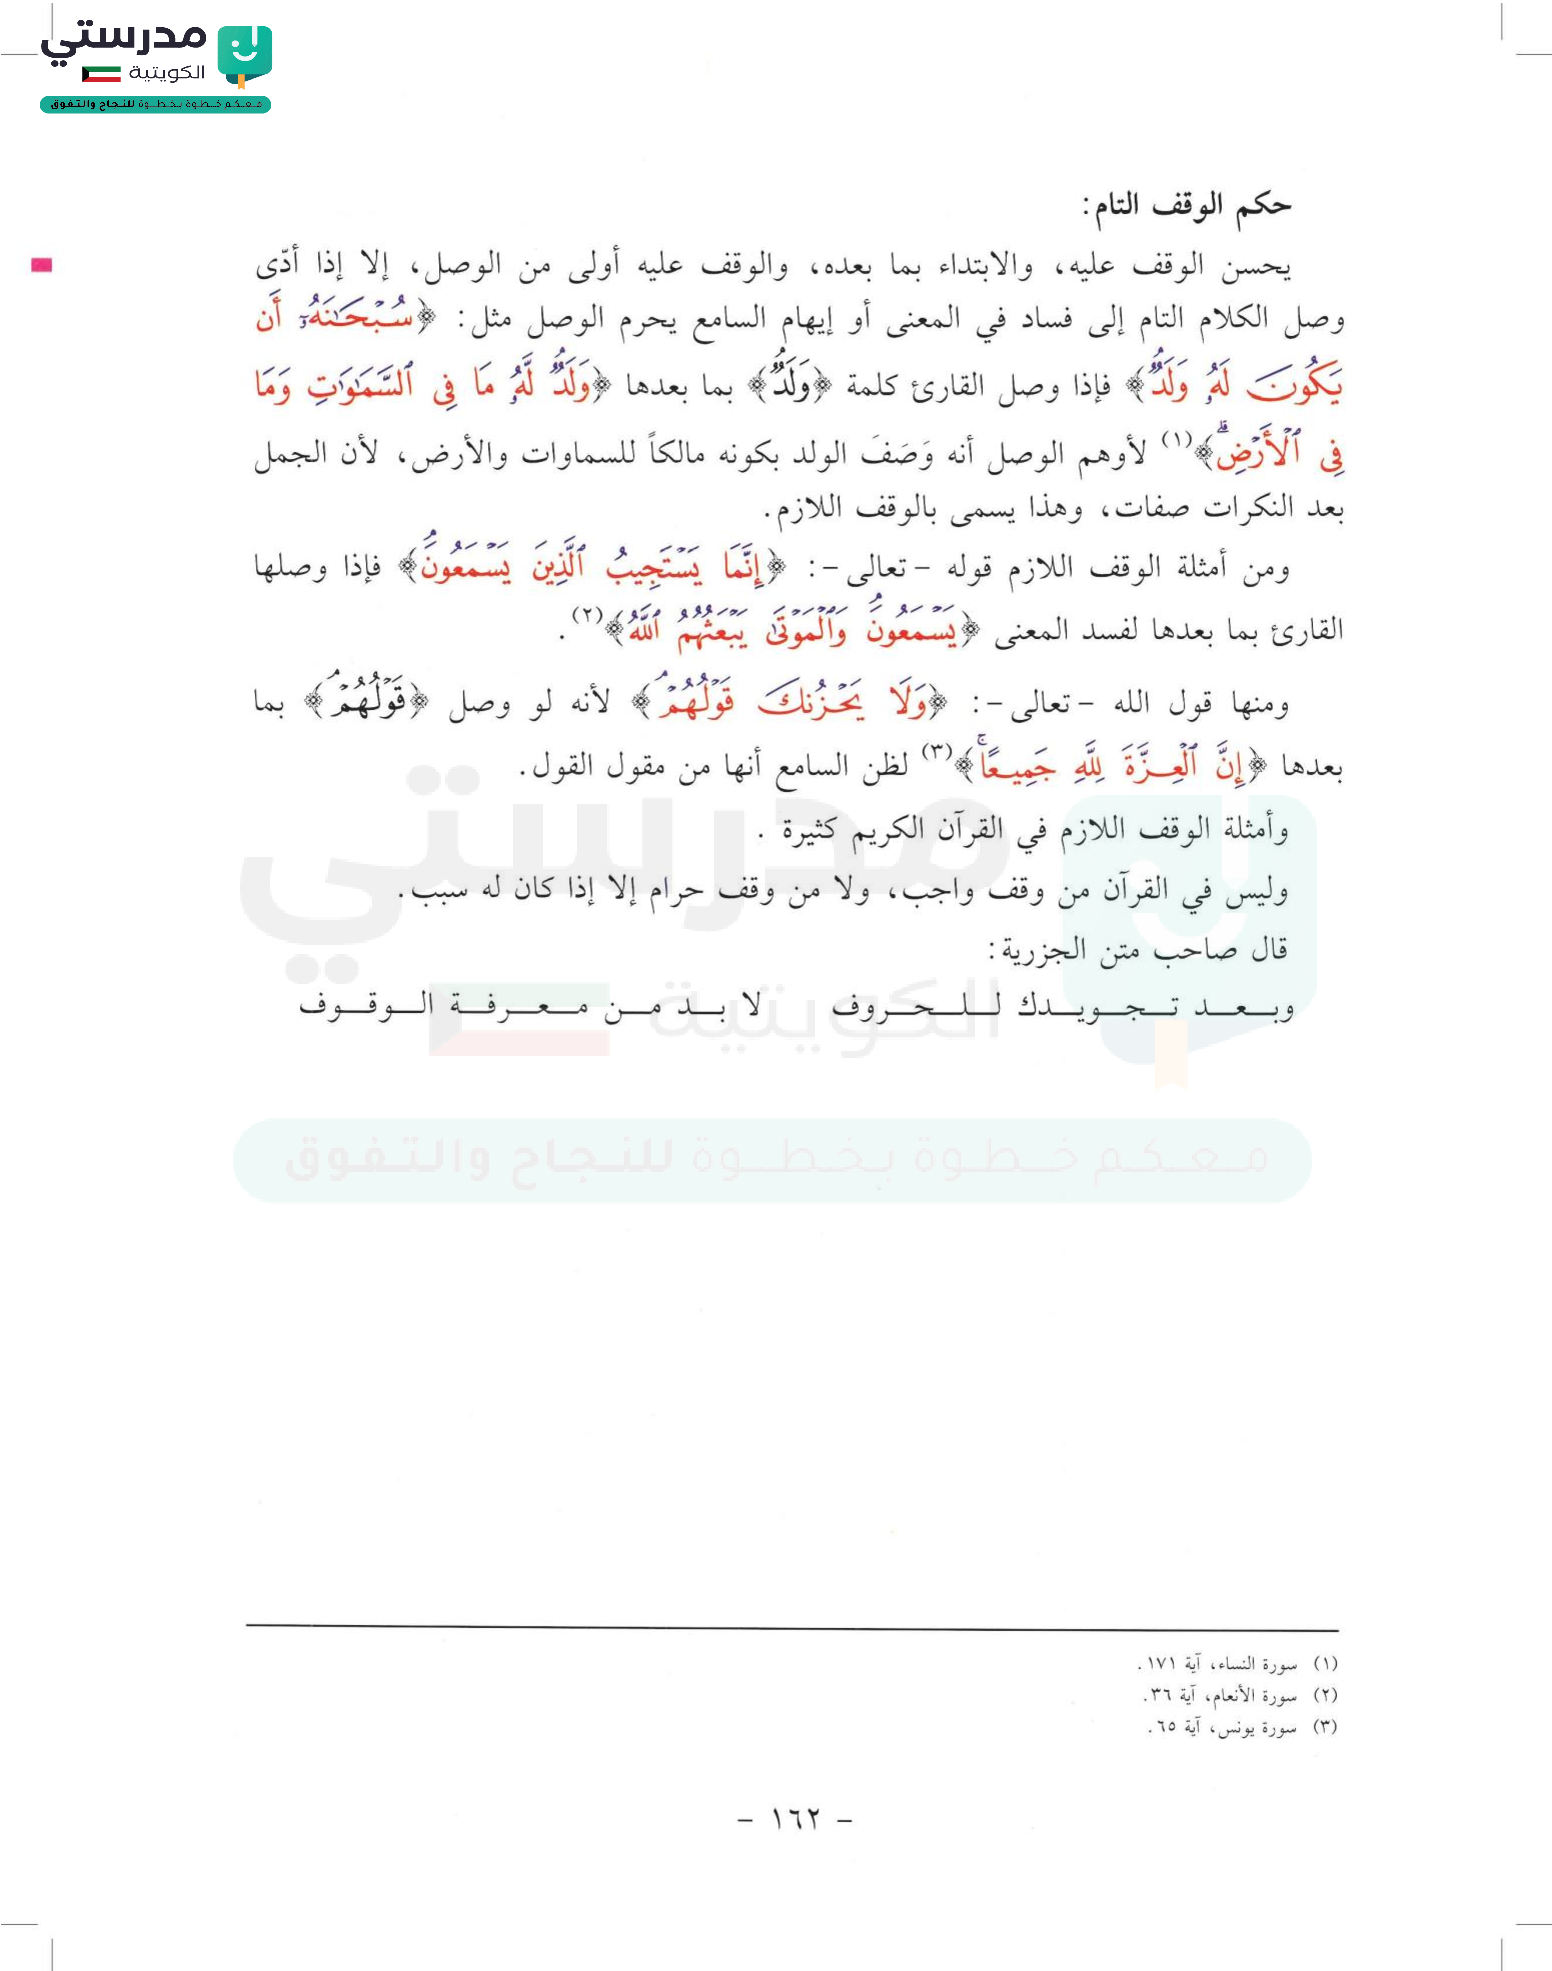 مدرستي
الكويتية
معكم خطوة بخطوة للنجاح والتفوق
حكم الوقف التام:
يحسن الوقف عليه، والابتداء بما بعده، والوقف عليه أولى من الوصل، إلا إذا أدّى
وصل الكلام التام إلى فساد في المعنى أو إيهام السامع يحرم الوصل مثل: ﴿سُبْحَٰنَهُۥٓ أَن
يَكُونَ لَهُۥ وَلَدٌۘ﴾ فإذا وصل القارئ كلمة ﴿وَلَدٌۘ﴾ بما بعدها ﴿وَلَدٌۘ لَّهُۥ مَا فِى ٱلسَّمَٰوَٰتِ وَمَا
فِى ٱلْأَرْضِۗ﴾(١) لأوهم الوصل أنه وَصَفَ الولد بكونه مالكاً للسماوات والأرض، لأن الجمل
بعد النكرات صفات، وهذا يسمى بالوقف اللازم.
ومن أمثلة الوقف اللازم قوله - تعالى -: ﴿إِنَّمَا يَسْتَجِيبُ ٱلَّذِينَ يَسْمَعُونَۘ﴾ فإذا وصلها
القارئ بما بعدها لفسد المعنى ﴿يَسْمَعُونَۘ وَٱلْمَوْتَىٰ يَبْعَثُهُمُ ٱللَّهُ﴾(٢).
ومنها قول الله - تعالى -: ﴿وَلَا يَحْزُنكَ قَوْلُهُمْۘ﴾ لأنه لو وصل ﴿قَوْلُهُمْۘ﴾ بما
بعدها ﴿إِنَّ ٱلْعِزَّةَ لِلَّهِ جَمِيعًاۚ﴾(٣) لظن السامع أنها من مقول القول.
وأمثلة الوقف اللازم في القرآن الكريم كثيرة .
وليس في القرآن من وقف واجب، ولا من وقف حرام إلا إذا كان له سبب.
قال صاحب متن الجزرية:
وبعد تجويدك للحروف لا بد من معرفة الوقوف
مدرستي
الكويتية
معكم خطوة بخطوة للنجاح والتفوق
(١) سورة النساء، آية ١٧١.
(٢) سورة الأنعام، آية ٣٦.
(٣) سورة يونس، آية ٦٥.
- ١٦٢ -